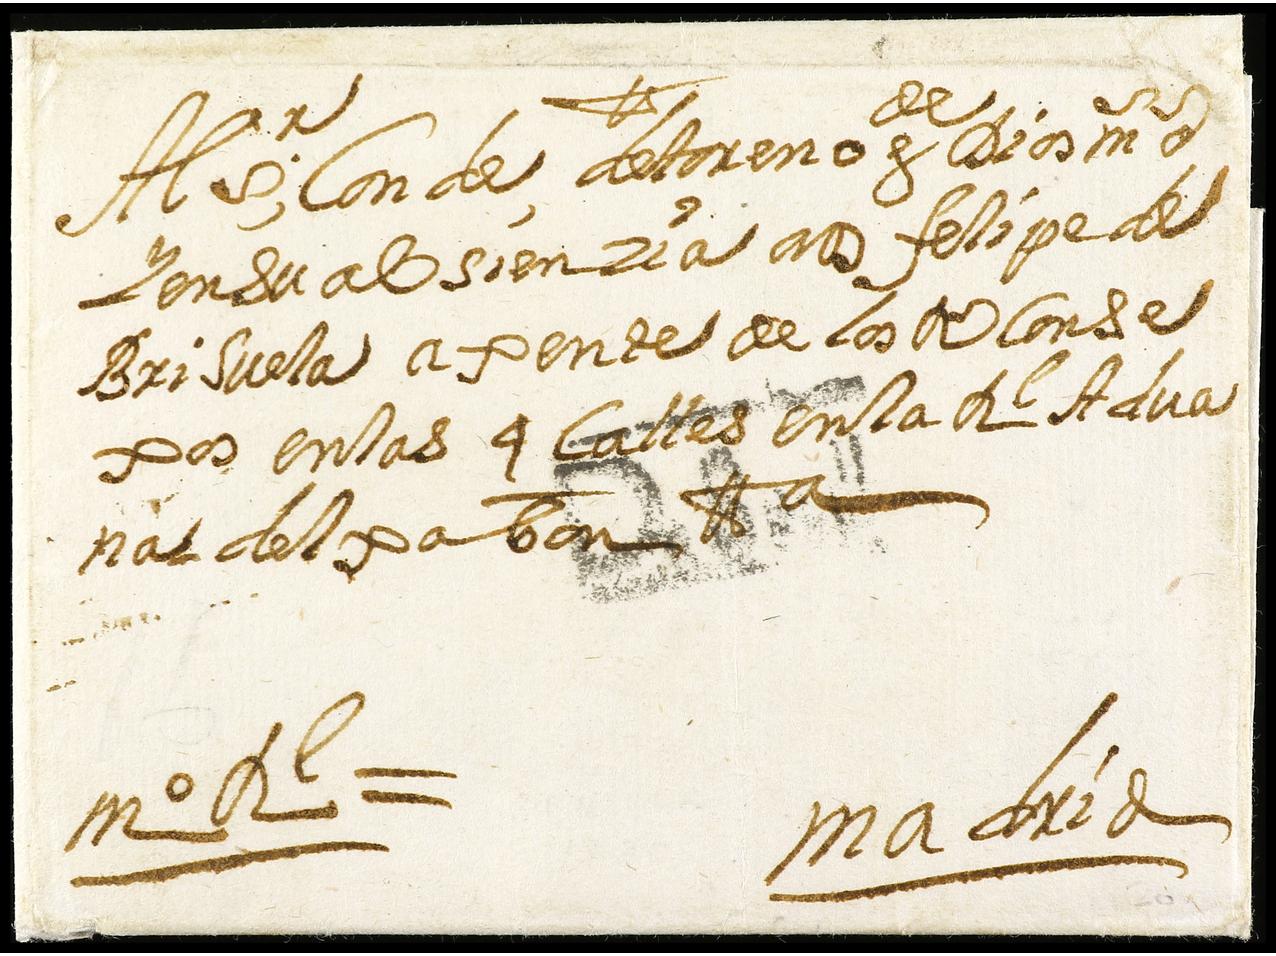 Al Sr Conde de toreno g de Dios ms as
Yensu absienzia a D felipe de
Brisuela axente de los Rs Conse
xos enlas 4 Calles enla Rl Adua
na del xabon
mo Rl =
madrid